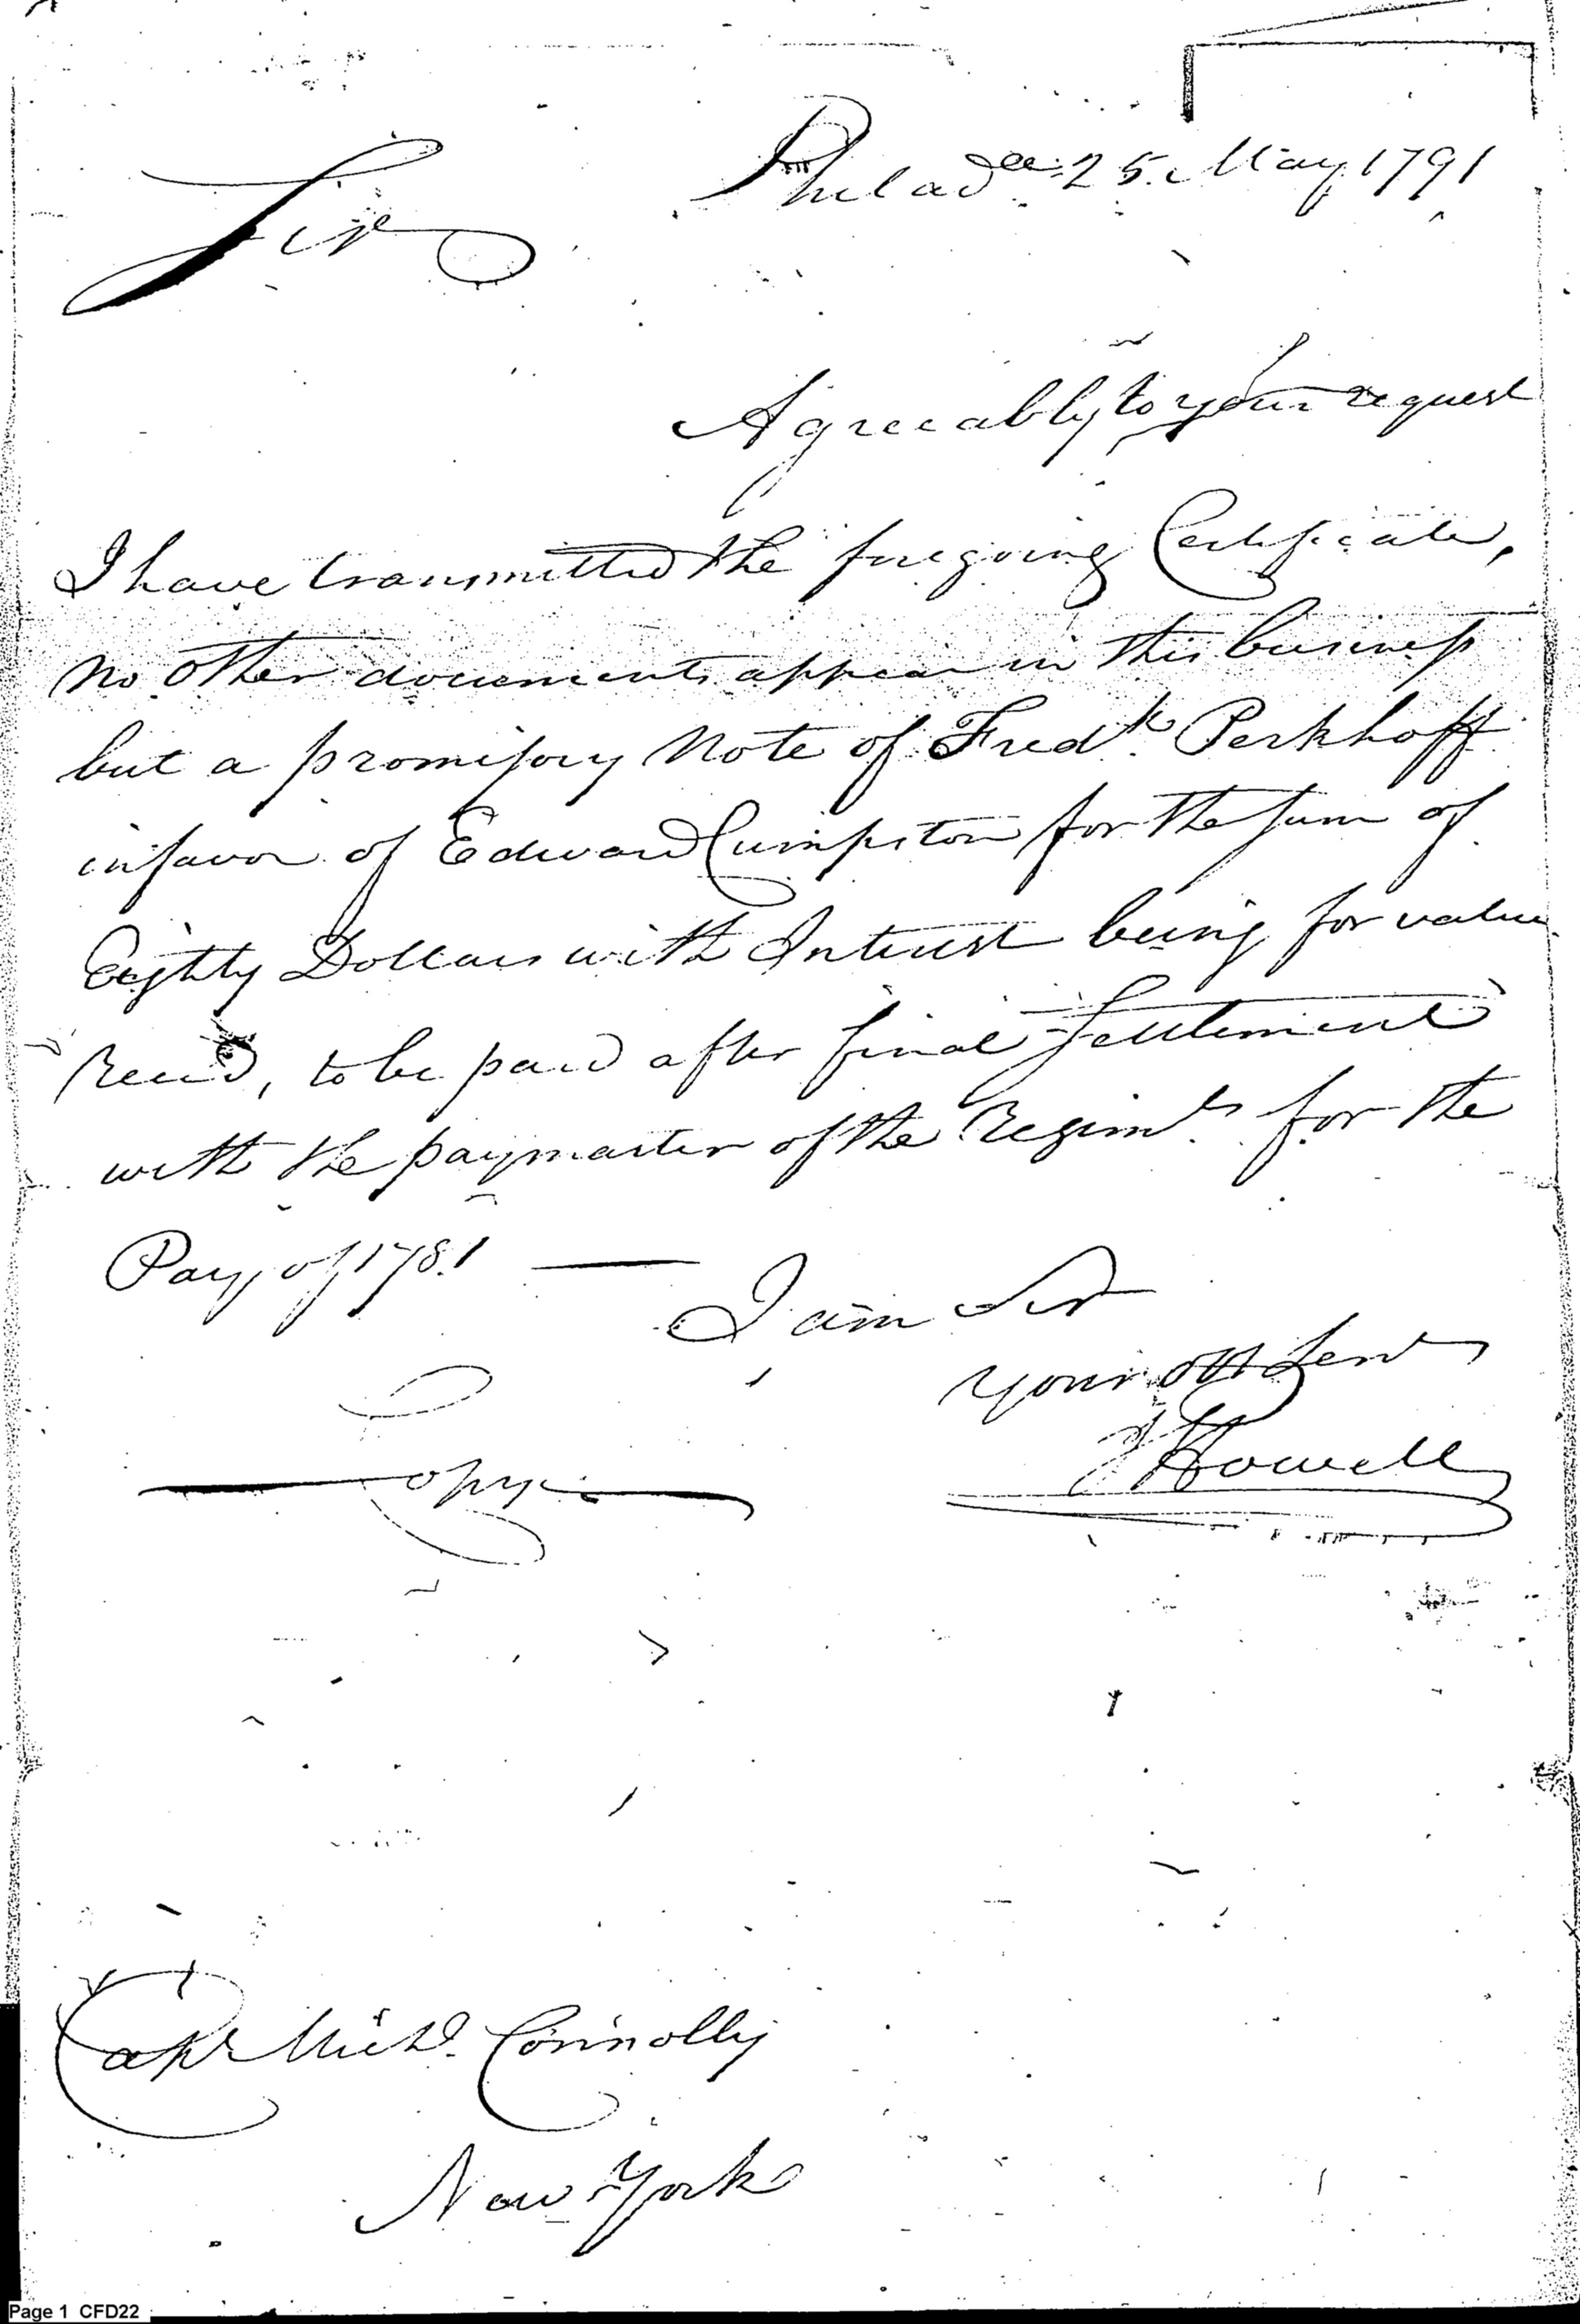 Philada. 25. May 1791
Sir
Agreeably to your request
I have transmitted the foregoing Certificate,
no other documents appear in this business
but a promissory Note of Fredk. Perkhoff
in favor of Edward Cumpston for the sum of
Eighty Dollars with Interest being for value
Recd, to be paid after final Settlement
with the paymaster of the Regimts. for the
Pay of 1781 —
I am Sir
your obt Servt
J Howell
Copy
Capt Michl. Connolly
New York
Page 1 CFD22